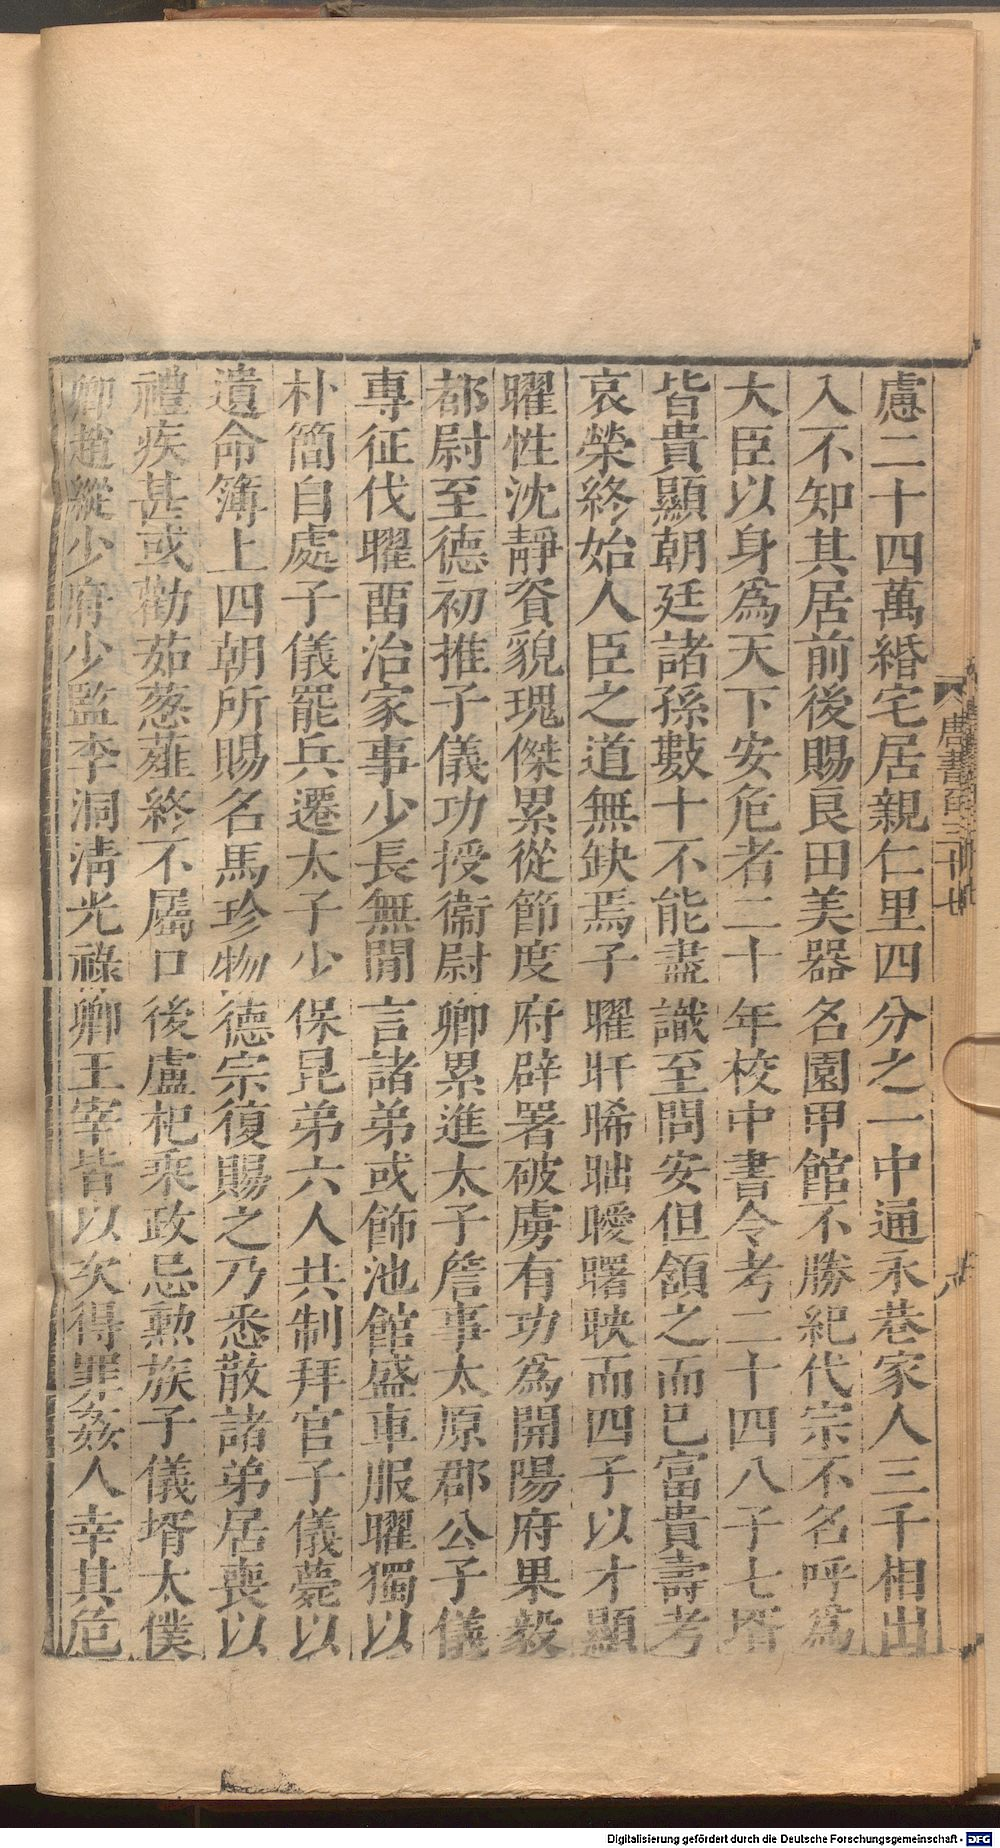 慮二十四萬緡宅居親仁里四分之一中通永巷家人三千相出
入不知其居前後賜良田美器名園甲館不勝紀代宗不名呼爲
大臣以身爲天下安危者二十年校中書令考二十四八子七壻
皆貴顯朝廷諸孫數十不能盡識至問安但頷之而已富貴壽考
哀榮終始人臣之道無缺焉子曜旰晞昢曖曙映而四子以才顯
曜性沈靜資貌瑰傑累從節度府辟署破虜有功爲開陽府果毅
都尉至德初推子儀功授衞尉卿累進太子詹事太原郡公子儀
專征伐曜畱治家事少長無閒言諸弟或飾池館盛車服曜獨以
朴簡自處子儀罷兵遷太子少保昆弟六人共制拜官子儀薨以
遺命簿上四朝所賜名馬珍物德宗復賜之乃悉散諸弟居喪以
禮疾甚或勸茹葱薤終不屬口後盧杞乘政忌勲族子儀壻太僕
卿趙縱少府少監李洞淸光祿卿王宰皆以次得罪姦人幸其危
唐書百三十七
Digitalisierung gefördert durch die Deutsche Forschungsgemeinschaft - DFG